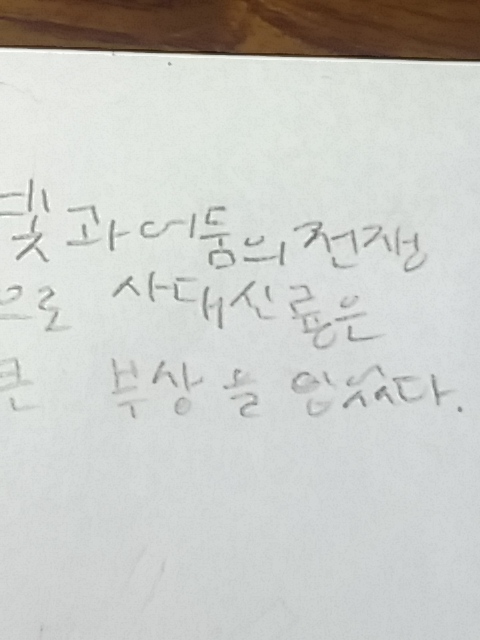 빛과 어둠의 전쟁
으로 사대신룡은
큰 부상을 입었다.